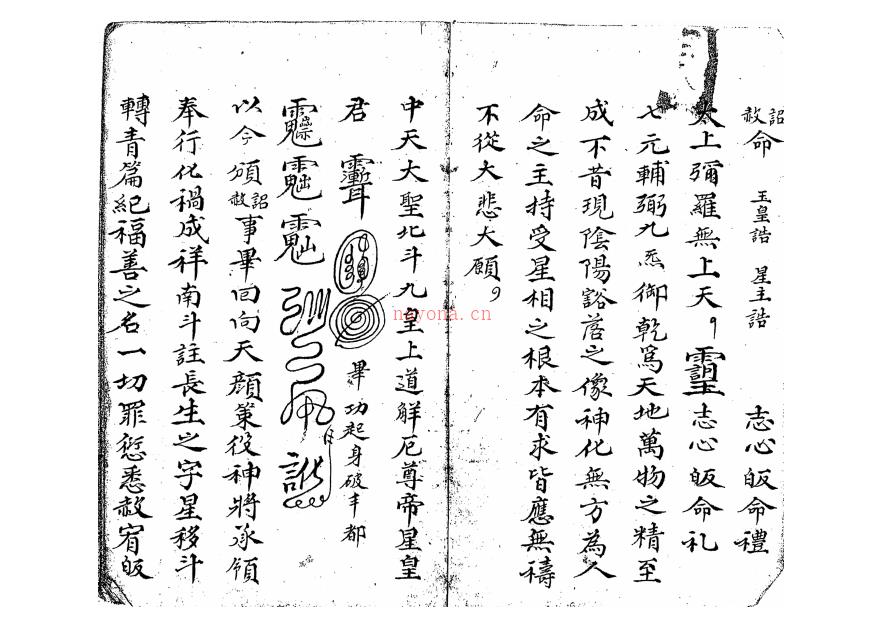 詔赦命 玉皇誥 星主誥 志心皈命禮
太上彌羅無上天 志心皈命礼
七元輔弼九炁御乾爲天地萬物之精至
成不昔現陰陽豁落之像神化無方為人
命之主持受星相之根本有求皆應無禱
不從大悲大願
中天大聖北斗九皇上道解厄尊帝星皇
君 畢功起身破丰都
以今頒詔赦事畢回向天顏策役神將承領
奉行化禍成祥南斗註長生之字星移斗
轉青篇紀福善之名一切罪愆悉赦宥皈
nayona.cn